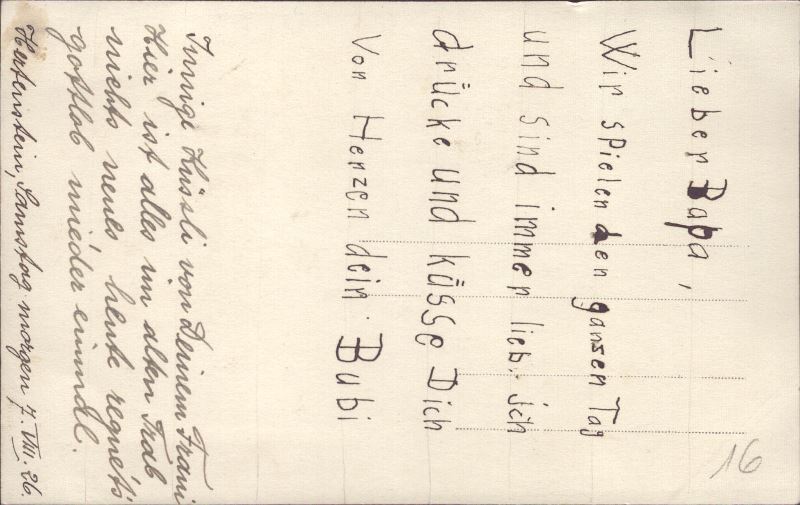 Lieber Bapa,
Wir spielen den gansen Tag
und sind immer lieb. ich
drücke und küsse Dich
Von Herzen dein Bubi
Innige Küssli von Deinem Frani
Hier ist alles im alten Trab
nichts neues heute regnet's
gottlob wieder einmal.
Hertenstein, Samstag morgen 7. VIII. 26.
16